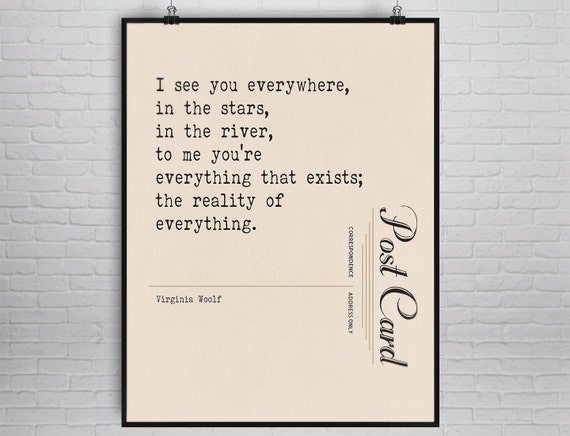 I see you everywhere,
in the stars,
in the river,
to me you're
everything that exists;
the reality of
everything.
Virginia Woolf
CORRESPONDENCE
ADDRESS ONLY
Post Card